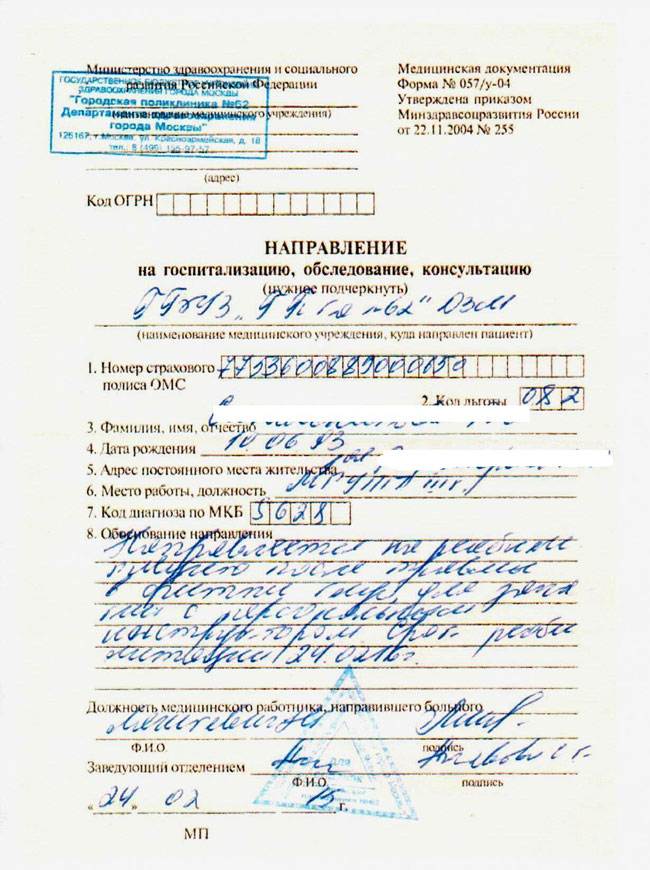 Министерство здравоохранения и социального
развития Российской Федерации
ГОСУДАРСТВЕННОЕ БЮДЖЕТНОЕ
ЗДРАВООХРАНЕНИЯ ГОРОДА МОСКВЫ
"Городская поликлиника №62
Департамента здравоохранения
города Москвы"
(наименование медицинского учреждения)
125167, г. Москва, ул. Красноармейская, д. 18
тел.: 8 (499)
(адрес)
Медицинская документация
Форма № 057/у-04
Утверждена приказом
Минздравсоцразвития России
от 22.11.2004 № 255
Код ОГРН
НАПРАВЛЕНИЕ
на госпитализацию, обследование, консультацию
(нужное подчеркнуть)
ДЗМ
(наименование медицинского учреждения, куда направлен пациент)
1. Номер страхового
полиса ОМС
2. Код льготы 082
3. Фамилия, имя, отчество
4. Дата рождения 10.06.93
5. Адрес постоянного места жительства
6. Место работы, должность
7. Код диагноза по МКБ S628
8. Обоснование направления
Направляется на реабили
после травмы
в фитнес для заня
с персональным
инструктором срок реаби
литации
Должность медицинского работника, направившего больного
Ф.И.О. подпись
Заведующий отделением
Для
Ф.И.О. подпись
„24“ 02 15 г.
МП